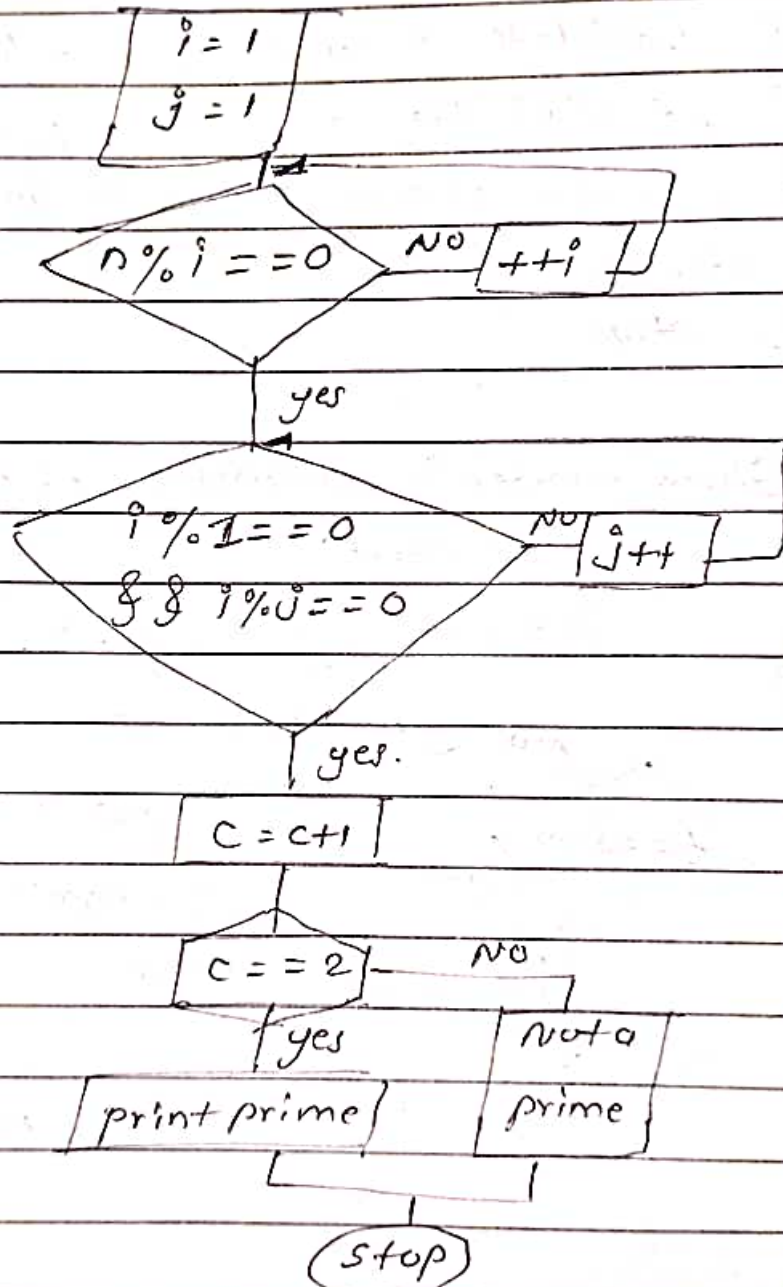 i = 1
j = 1
n % i = = 0
NO
++i
yes
i % 1 = = 0
&& i % j = = 0
NO
j++
yes.
C = c+1
c = = 2
NO
yes
Not a
prime
print prime
stop